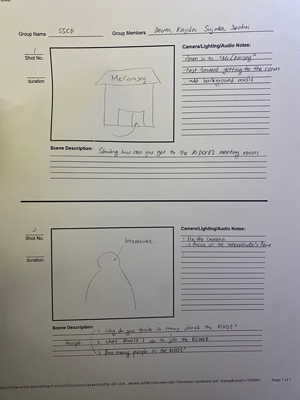 Group Name SSCD Group Members Devan, Kayda, Sujata,
1
Shot No.
duration
McComsey
Camera/Lighting/Audio Notes:
- Zoom in to "McComsey"
- Fast forward getting to the room
- add background music
Scene Description: Showing how can you get to the meeting room
2
Shot No.
duration
Interviewee
Camera/Lighting/Audio Notes:
- Fix the camera
- focus on the interviewee's face
Scene Description: 1. Why do you think is many joined the
Script 2. What should I do to join the
3. How many people in the
Page 1 of 1